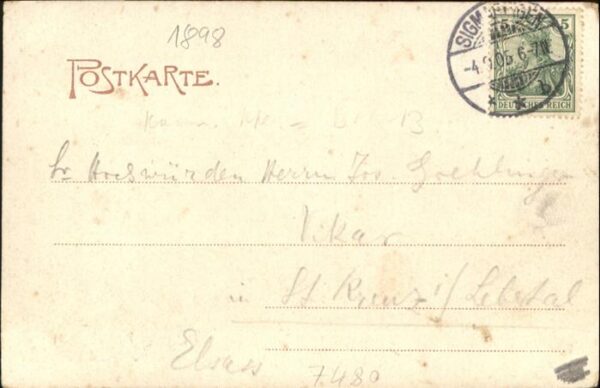 1898
POSTKARTE.
SIGMARINGEN
-4.9.05.6-7N
5 5
DEUTSCHES REICH
Sr Hochwürden Herrn Jos. Goehlinger
Vikar
in St Kreuz i/ Lebertal
Elsass
7480